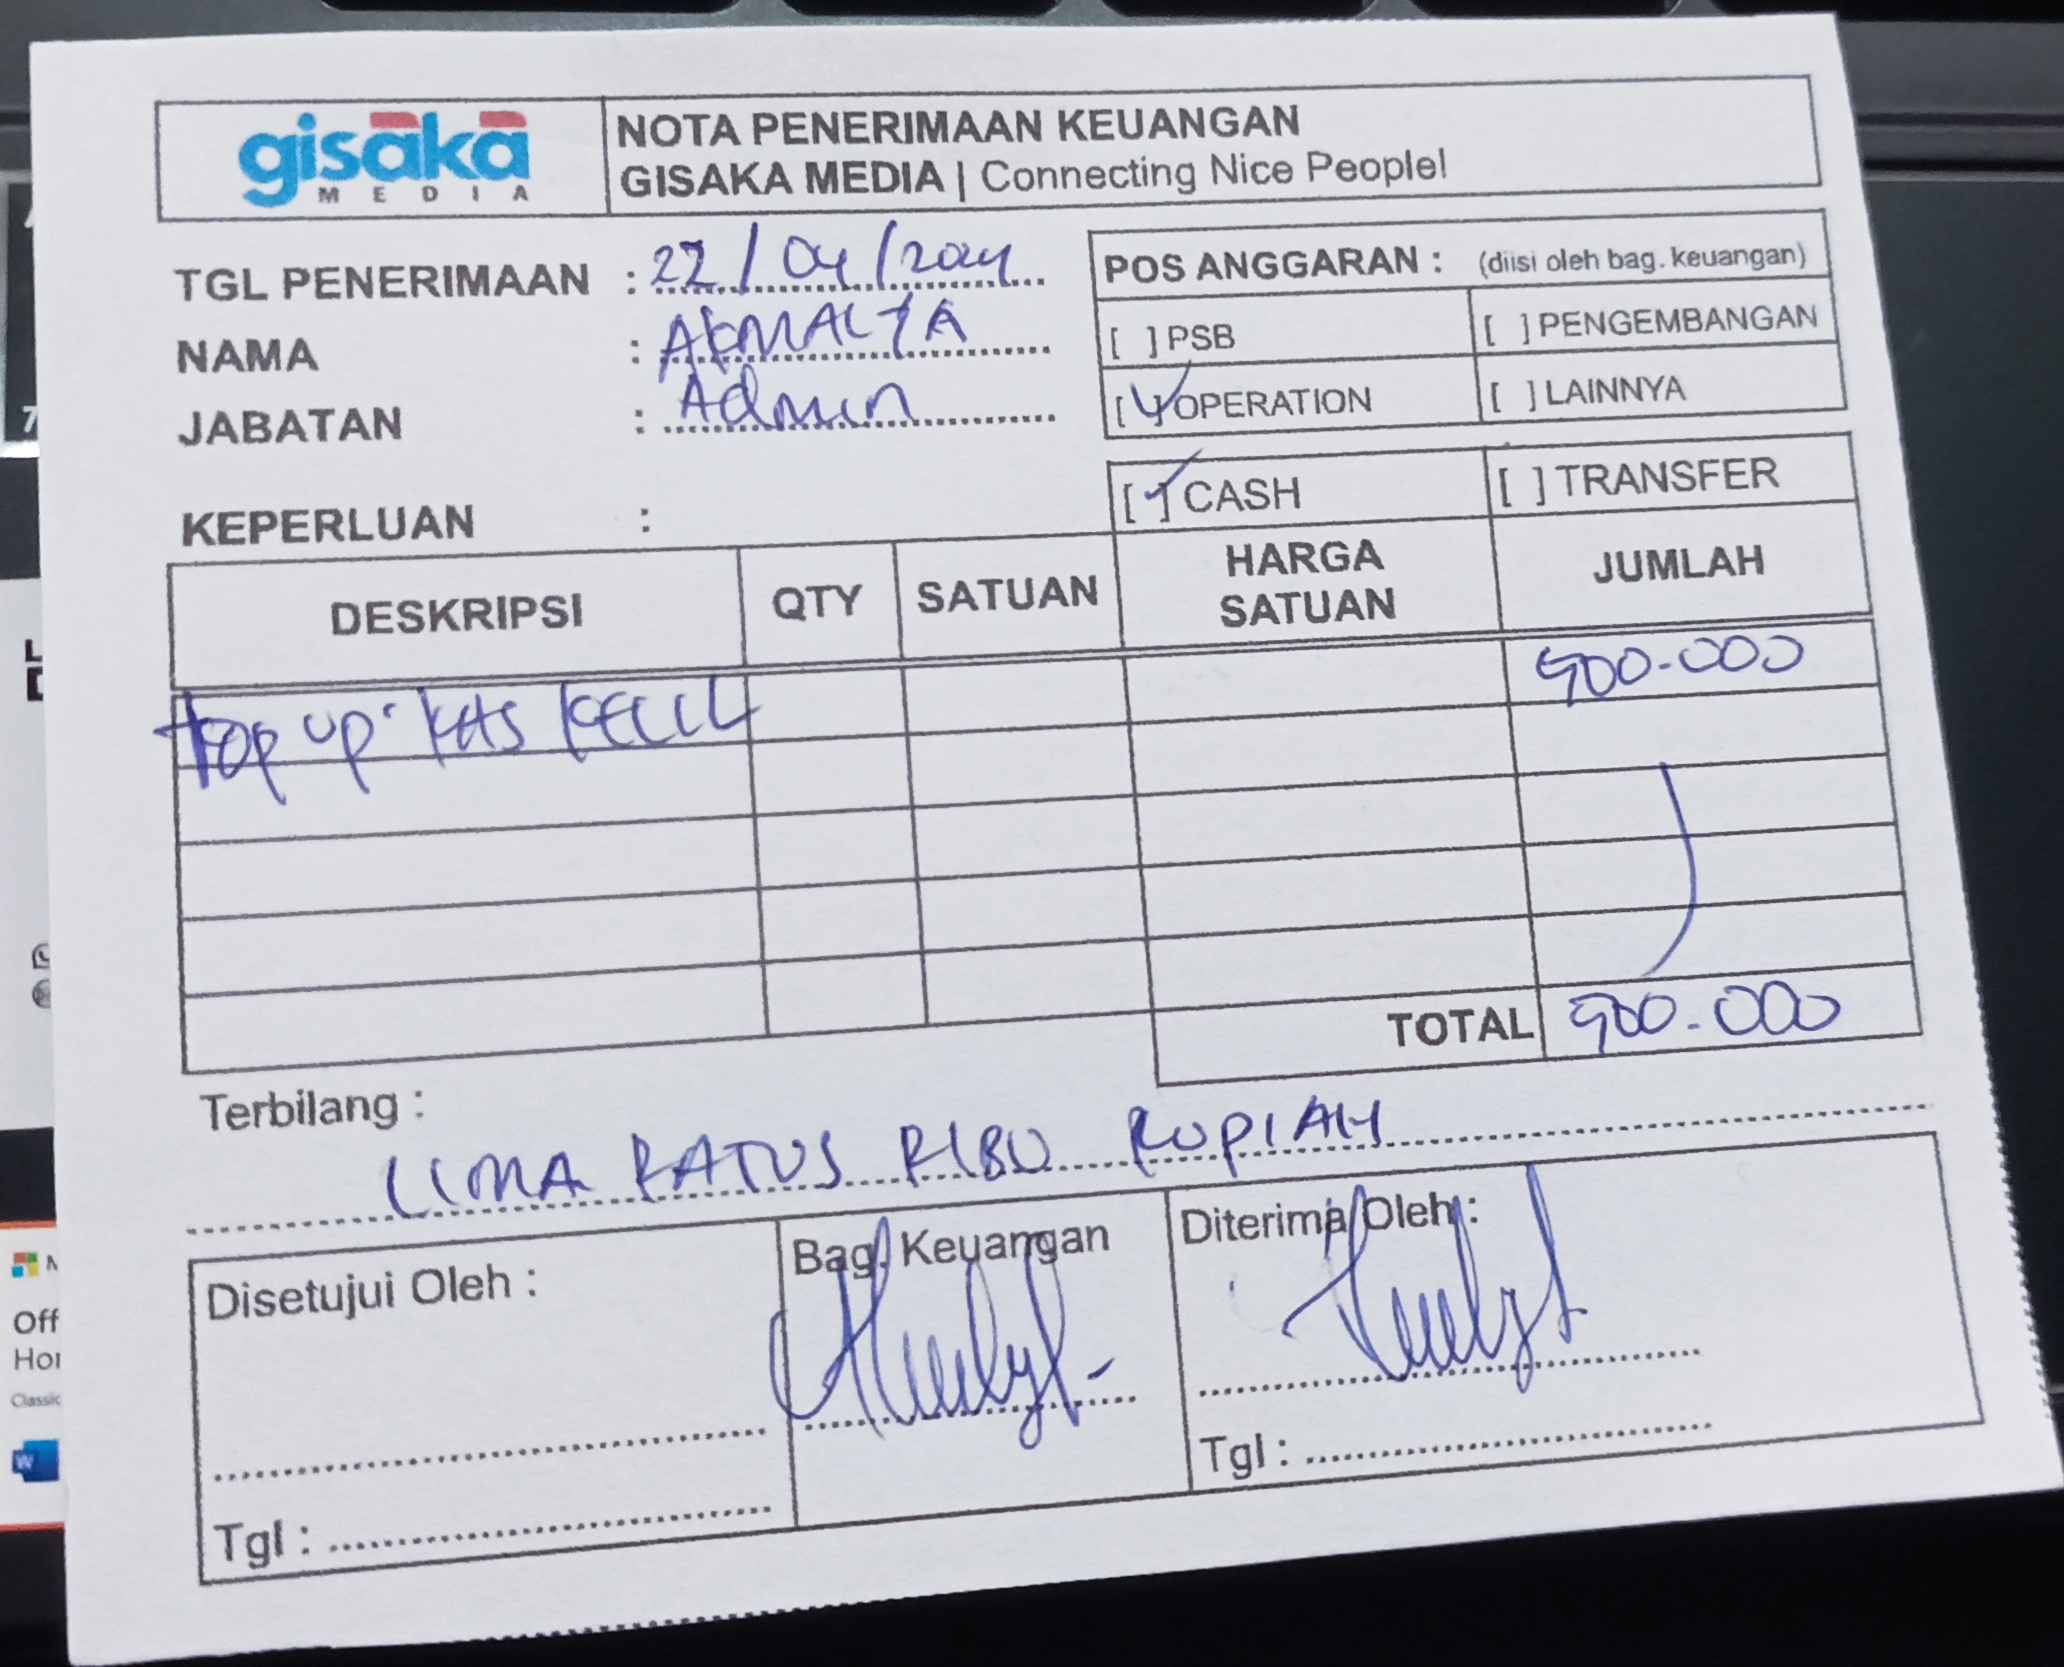 gisaka
MEDIA
NOTA PENERIMAAN KEUANGAN
GISAKA MEDIA | Connecting Nice People!
TGL PENERIMAAN : 22/04/2024
NAMA : AKMALYA
JABATAN : Admin
POS ANGGARAN : (diisi oleh bag. keuangan)
[ ] PSB [ ] PENGEMBANGAN
[✓] OPERATION [ ] LAINNYA
KEPERLUAN :
[✓] CASH [ ] TRANSFER
DESKRIPSI QTY SATUAN HARGA SATUAN JUMLAH
Top up KAS KECIL 500.000
TOTAL 500.000
Terbilang :
LIMA RATUS RIBU RUPIAH
Disetujui Oleh : Bag. Keuangan Diterima Oleh :
Tgl : Tgl :